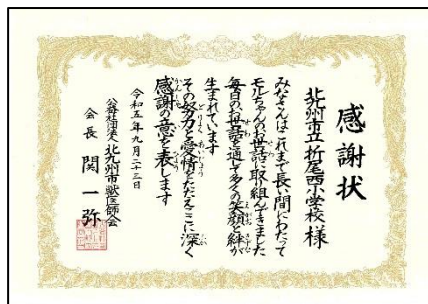 感謝状
北九州市立折尾西小学校 様
みなさんはこれまで長い間にわたって
モルちゃんのお世話に取り組んできました
毎日のお世話を通して多くの笑顔と絆が
生まれています
その努力と愛情をたたえここに深く
感謝の意を表します
令和五年九月二十三日
公益社団法人北九州市獣医師会
会長 関一弥